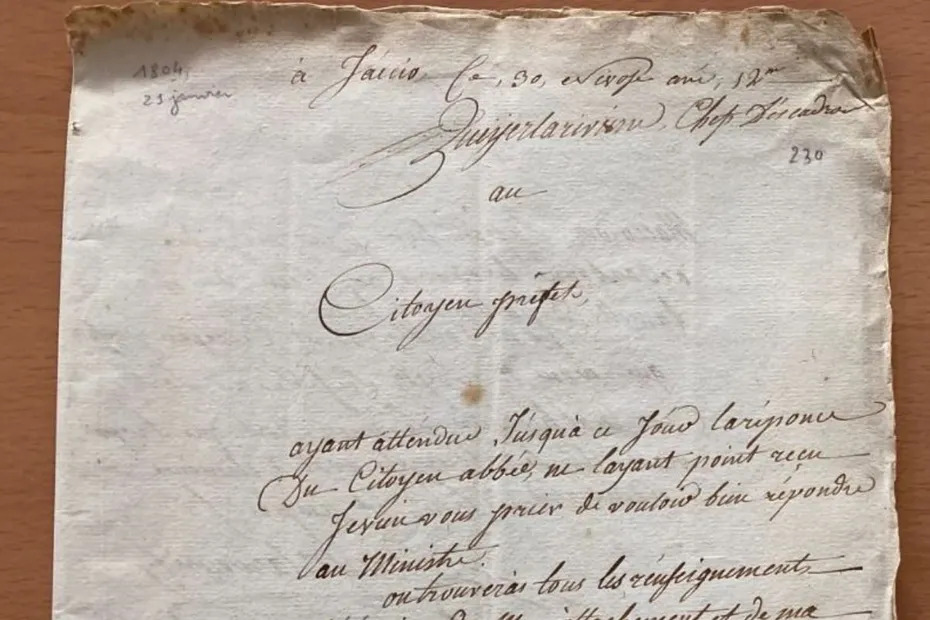 1804,
21 janvier
à Jaccio, Ce, 30, Nivose an, 12me
Chef D'éscadron
230
au
Citoyen préfet,
ayant atténdue Jusqu'à ce Jour laréponce
Du Citoyen abbée, ne layant point recu
Jevien vous prier de vouloir bien répondre
au Ministre.
on trouveras tous les rénseignements
et de ma